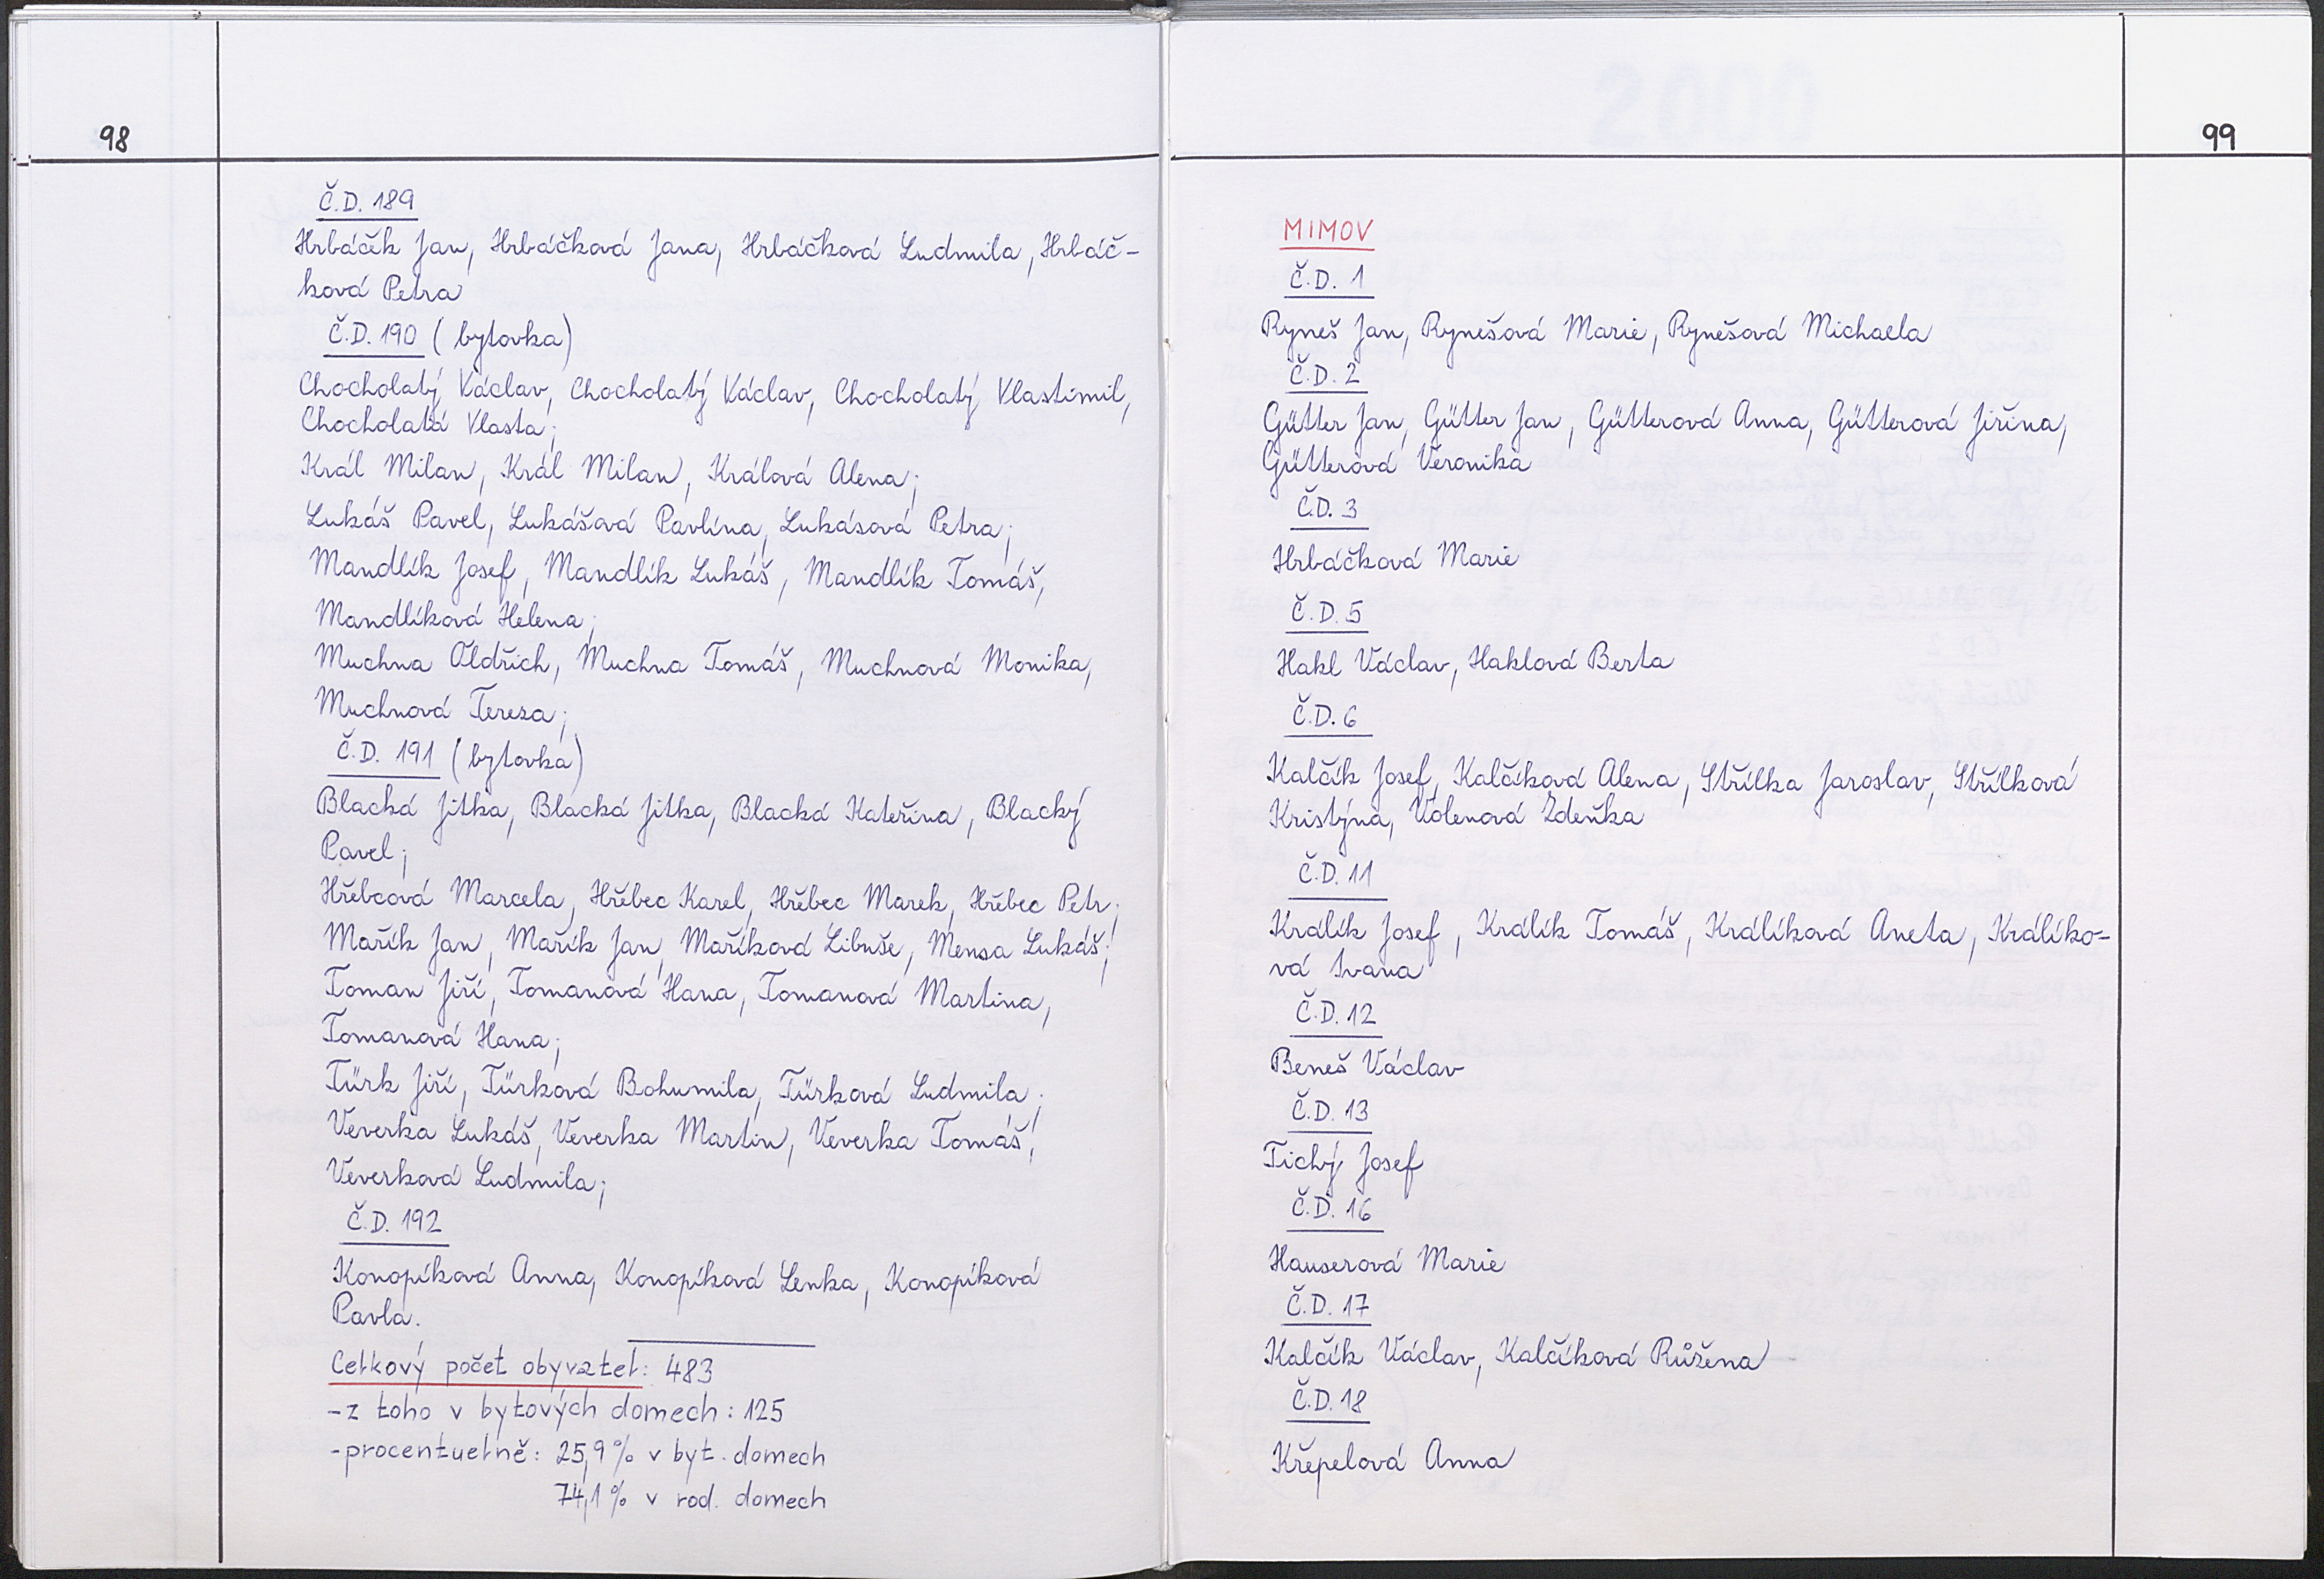 98
Č.D. 189
Hrbáček Jan, Hrbáčková Jana, Hrbáčková Ludmila, Hrbáč-
ková Petra
Č.D. 190 (bytovka)
Chocholatý Václav, Chocholatý Václav, Chocholatý Vlastimil,
Chocholatá Vlasta;
Král Milan, Král Milan, Králová Alena;
Lukáš Pavel, Lukášová Pavlína, Lukásová Petra;
Mandlík Josef, Mandlík Lukáš, Mandlík Tomáš,
Mandlíková Helena;
Muchna Oldřich, Muchna Tomáš, Muchnová Monika,
Muchnová Tereza;
Č.D. 191 (bytovka)
Blacká Jitka, Blacká Jitka, Blacká Kateřina, Blacký
Pavel;
Hřebcová Marcela, Hřebec Karel, Hřebec Marek, Hřebec Petr;
Mařík Jan, Mařík Jan, Maříková Libuše, Mensa Lukáš;
Toman Jiří, Tomanová Hana, Tomanová Martina,
Tomanová Hana;
Türk Jiří, Türková Bohumila, Türková Ludmila;
Veverka Lukáš, Veverka Martin, Veverka Tomáš,
Veverková Ludmila;
Č.D. 192
Konopíková Anna, Konopíková Lenka, Konopíková
Pavla.
Celkový počet obyvatel: 483
-z toho v bytových domech: 125
-procentuelně: 25,9% v byt. domech
74,1% v rod. domech
2000
99
MIMOV
Č.D. 1
Ryneš Jan, Rynešová Marie, Rynešová Michaela
Č.D. 2
Gütter Jan, Gütter Jan, Gütterová Anna, Gütterová Jiřina,
Gütterová Veronika
Č.D. 3
Hrbáčková Marie
Č.D. 5
Hakl Václav, Haklová Berta
Č.D. 6
Kalčík Josef, Kalčíková Alena, Střílka Jaroslav, Střílková
Kristýna, Volenová Zdeňka
Č.D. 11
Králík Josef, Králík Tomáš, Králíková Aneta, Králíko-
vá Ivana
Č.D. 12
Beneš Václav
Č.D. 13
Tichý Josef
Č.D. 16
Hauserová Marie
Č.D. 17
Kalčík Václav, Kalčíková Růžena
Č.D. 18
Křepelová Anna